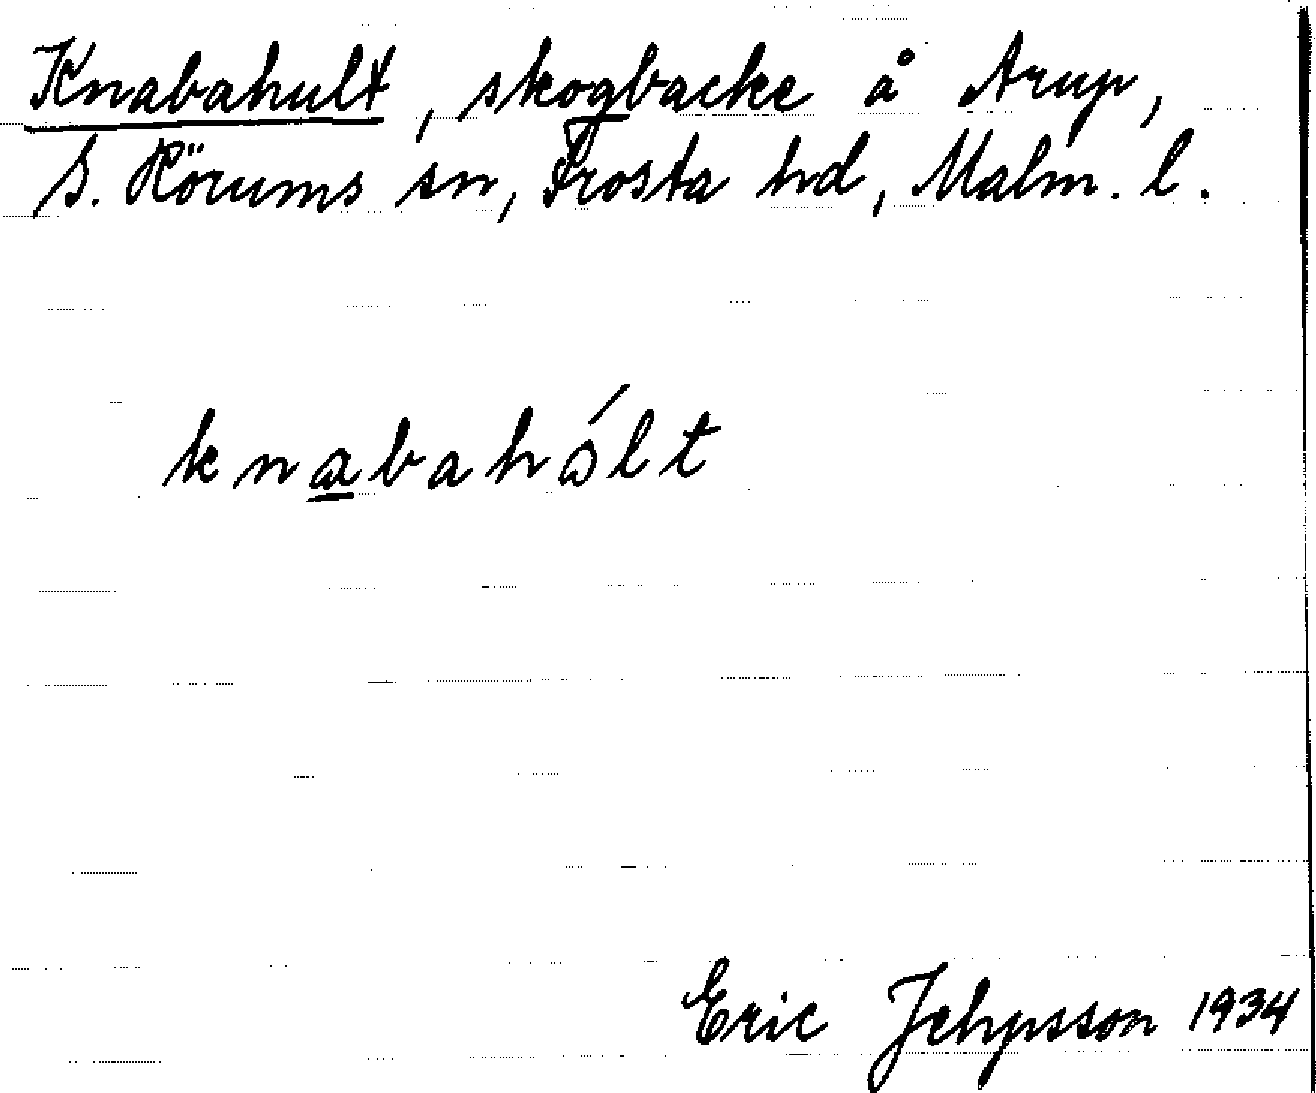 Knabahult, skogbacke å Arup,
S. Rörums sn, Frosta hd, Malm. l.
knabahólt
Eric Jehpsson 1934